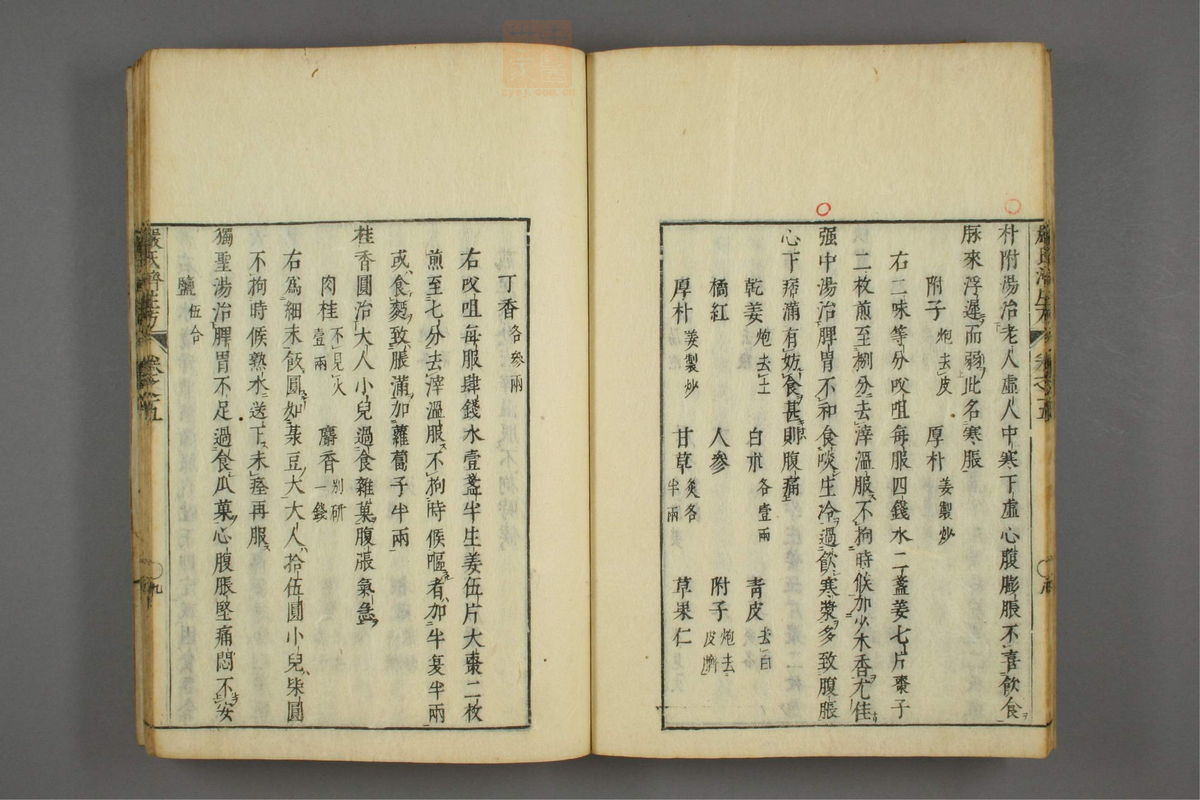 朴附湯治老人虛人中寒下虛心腹膨脹不喜飲食
脉來浮遲而弱此名寒脹
附子炮去皮 厚朴姜製炒
右二味等分㕮咀每服四錢水二盞姜七片棗子
二枚煎至捌分去滓溫服不拘時候加少木香尤佳
强中湯治脾胃不和食啖生冷過飲寒漿多致腹脹
心下痞滿有妨食甚則腹痛
乾姜炮去土 白朮各壹兩 青皮去白
橘紅 人參 附子炮去皮臍
厚朴姜製炒 甘草炙各半兩 草果仁
丁香各參兩
右㕮咀每服肆錢水壹盞半生姜伍片大棗二枚
煎至七分去滓溫服不拘時候嘔者加半夏半兩
或食麪致脹滿加蘿蔔子半兩
桂香圓治大人小兒過食雜菓腹脹氣急
肉桂不見火壹兩 麝香別研一錢
右爲細末飯圓如菉豆大大人拾伍圓小兒柒圓
不拘時候熟水送下未痊再服
獨聖湯治脾胃不足過食瓜菓心腹脹堅痛悶不安
鹽伍合
嚴氏濟生方 卷之五 九